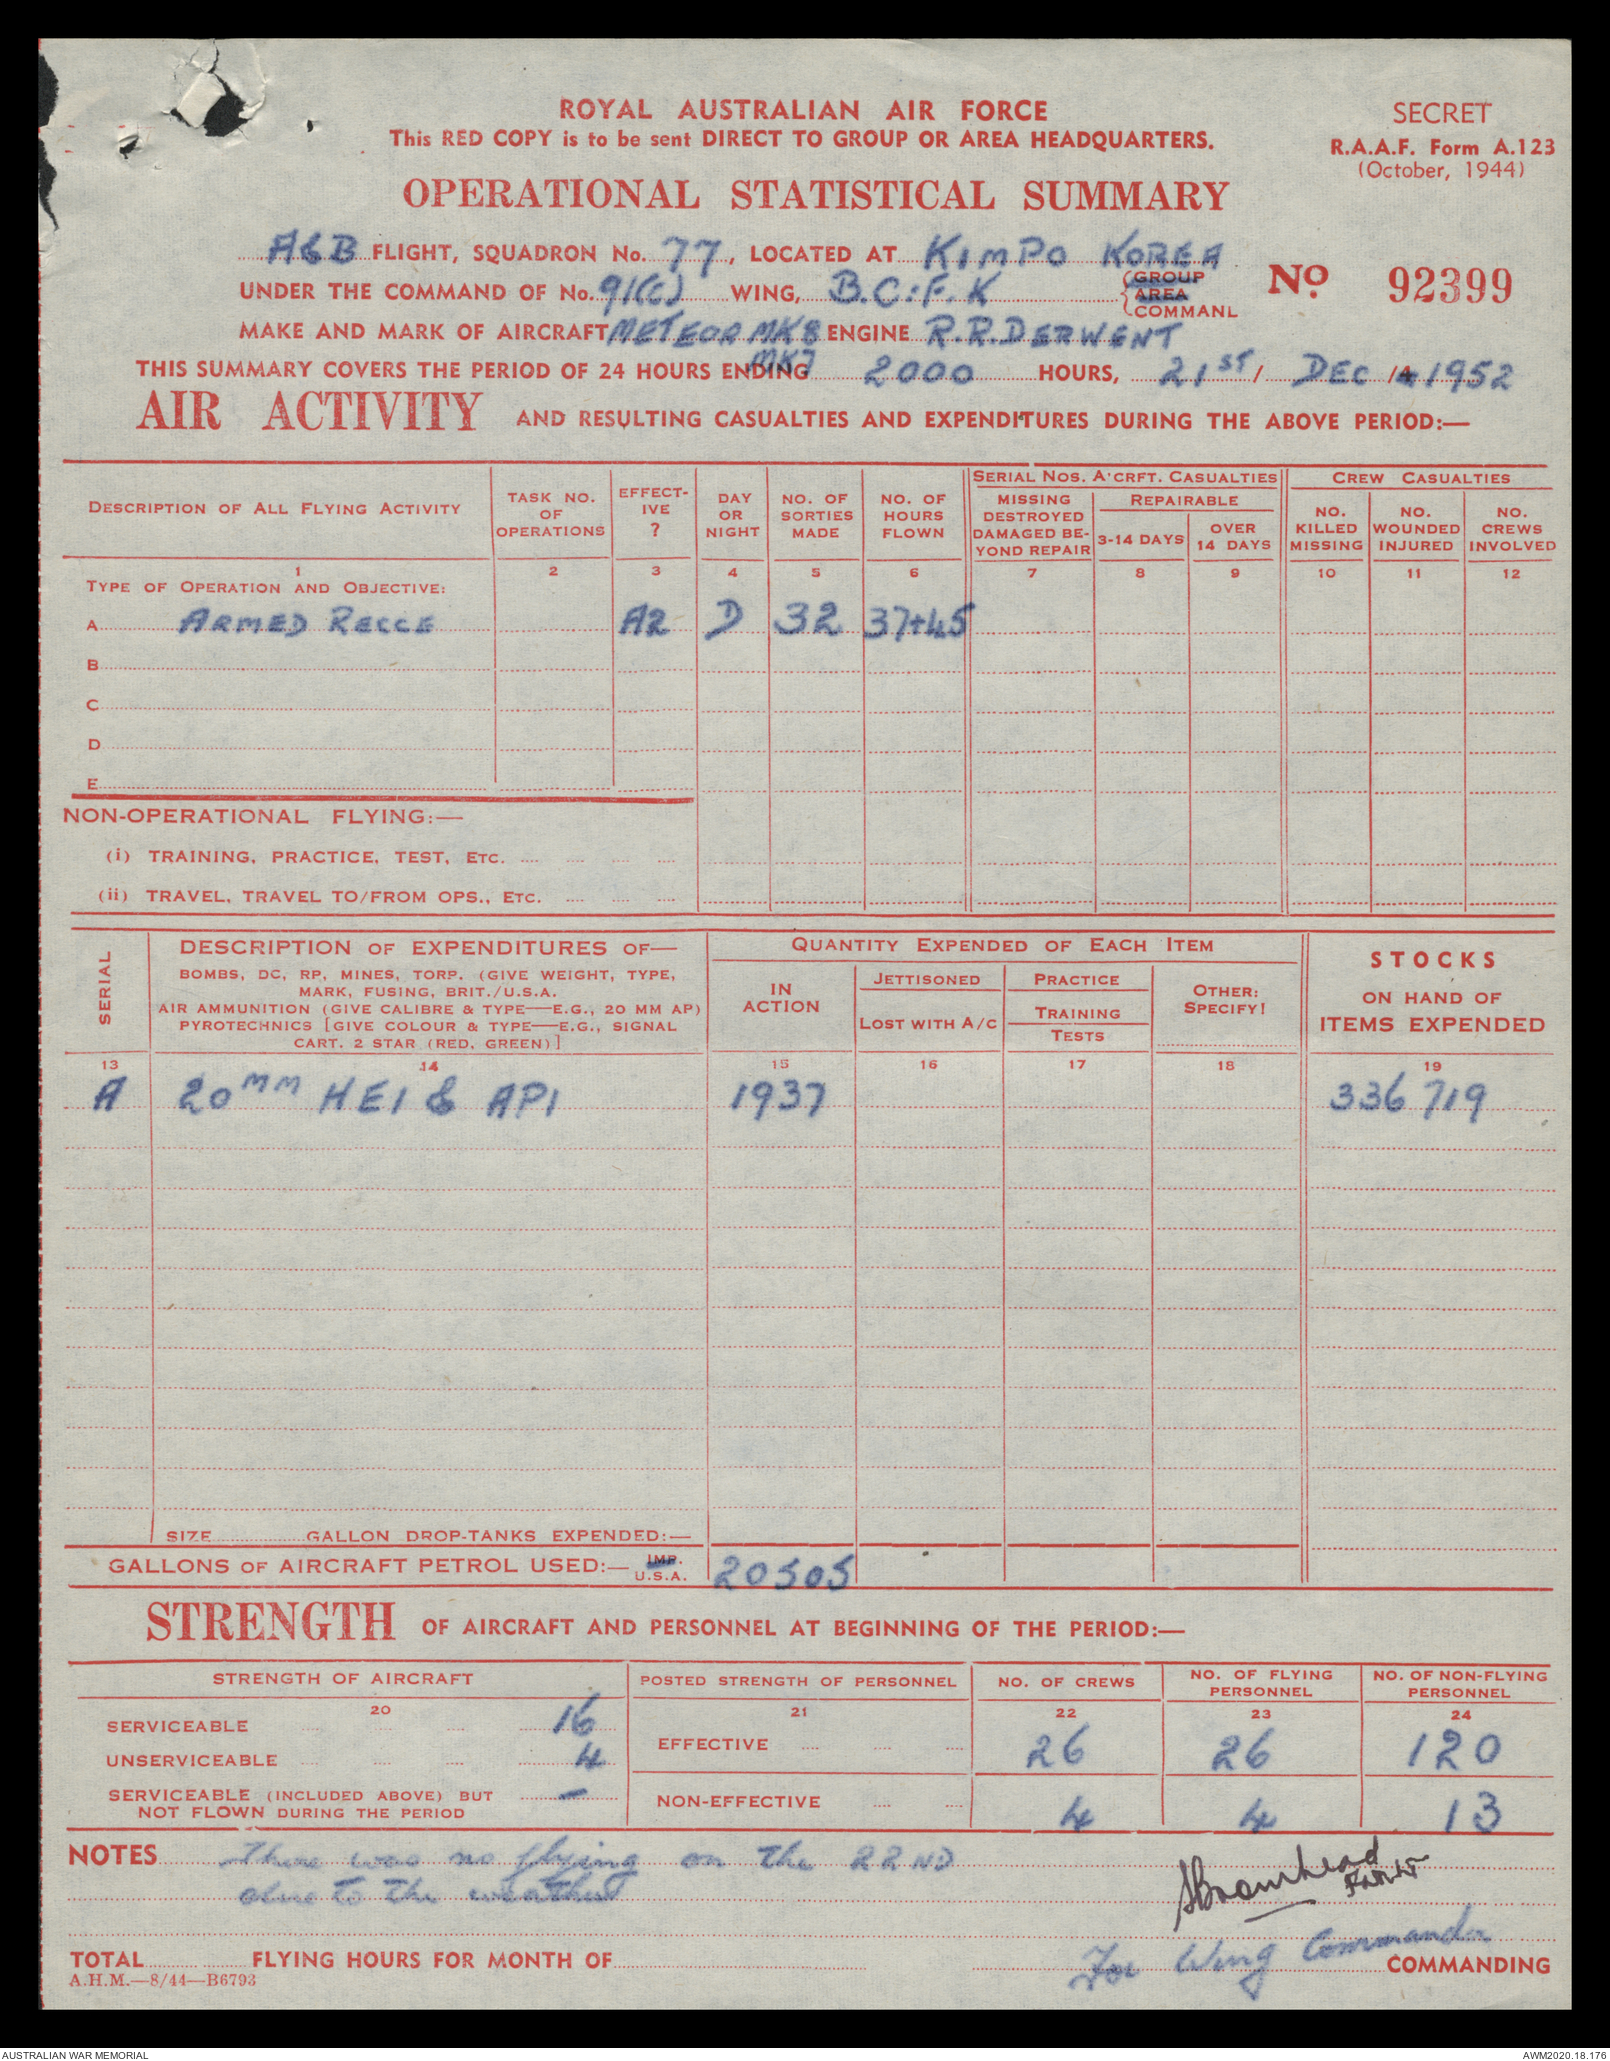 ROYAL AUSTRALIAN AIR FORCE
This RED COPY is to be sent DIRECT TO GROUP OR AREA HEADQUARTERS.
SECRET
R.A.A.F. Form A.123
(October, 1944)
OPERATIONAL STATISTICAL SUMMARY
A&B FLIGHT, SQUADRON No. 77, LOCATED AT KIMPO KOREA
UNDER THE COMMAND OF No. 91(C) WING, B.C.F.K {GROUP AREA COMMANL
No. 92399
MAKE AND MARK OF AIRCRAFT METEOR MK8 ENGINE R.R.DERWENT
MK7
THIS SUMMARY COVERS THE PERIOD OF 24 HOURS ENDING 2000 HOURS, 21ST / DEC /4 1952
AIR ACTIVITY AND RESULTING CASUALTIES AND EXPENDITURES DURING THE ABOVE PERIOD:—
DESCRIPTION OF ALL FLYING ACTIVITY TASK NO. OF OPERATIONS EFFECT-IVE ? DAY OR NIGHT NO. OF SORTIES MADE NO. OF HOURS FLOWN
SERIAL NOS. A'CRFT. CASUALTIES CREW CASUALTIES
MISSING DESTROYED DAMAGED BE-YOND REPAIR REPAIRABLE 3-14 DAYS OVER 14 DAYS NO. KILLED MISSING NO. WOUNDED INJURED NO. CREWS INVOLVED
1 2 3 4 5 6 7 8 9 10 11 12
TYPE OF OPERATION AND OBJECTIVE:
A ARMED RECCE A2 D 32 37+45
B
C
D
E
NON-OPERATIONAL FLYING:—
(i) TRAINING, PRACTICE, TEST, ETC.
(ii) TRAVEL, TRAVEL TO/FROM OPS., ETC.
SERIAL
DESCRIPTION OF EXPENDITURES OF—
BOMBS, DC, RP, MINES, TORP. (GIVE WEIGHT, TYPE,
MARK, FUSING, BRIT./U.S.A.
AIR AMMUNITION (GIVE CALIBRE & TYPE—E.G., 20 MM AP)
PYROTECHNICS [GIVE COLOUR & TYPE—E.G., SIGNAL
CART. 2 STAR (RED, GREEN)]
QUANTITY EXPENDED OF EACH ITEM
IN ACTION
JETTISONED
LOST WITH A/C
PRACTICE
TRAINING
TESTS
OTHER:
SPECIFY!
STOCKS
ON HAND OF
ITEMS EXPENDED
13 14 15 16 17 18 19
A 20MM HEI & API 1937 336 719
SIZE GALLON DROP-TANKS EXPENDED:—
GALLONS OF AIRCRAFT PETROL USED:— IMP. U.S.A. 20505
STRENGTH OF AIRCRAFT AND PERSONNEL AT BEGINNING OF THE PERIOD:—
STRENGTH OF AIRCRAFT POSTED STRENGTH OF PERSONNEL NO. OF CREWS NO. OF FLYING PERSONNEL NO. OF NON-FLYING PERSONNEL
20 21 22 23 24
SERVICEABLE 16
EFFECTIVE 26 26 120
UNSERVICEABLE 4
SERVICEABLE (INCLUDED ABOVE) BUT
NOT FLOWN DURING THE PERIOD —
NON-EFFECTIVE 4 4 13
NOTES There was no flying on the 22ND
due to the weather
Bromhead
For Wing Commander
TOTAL FLYING HOURS FOR MONTH OF COMMANDING
A.H.M.—8/44—B6793
AUSTRALIAN WAR MEMORIAL
AWM2020.18.176